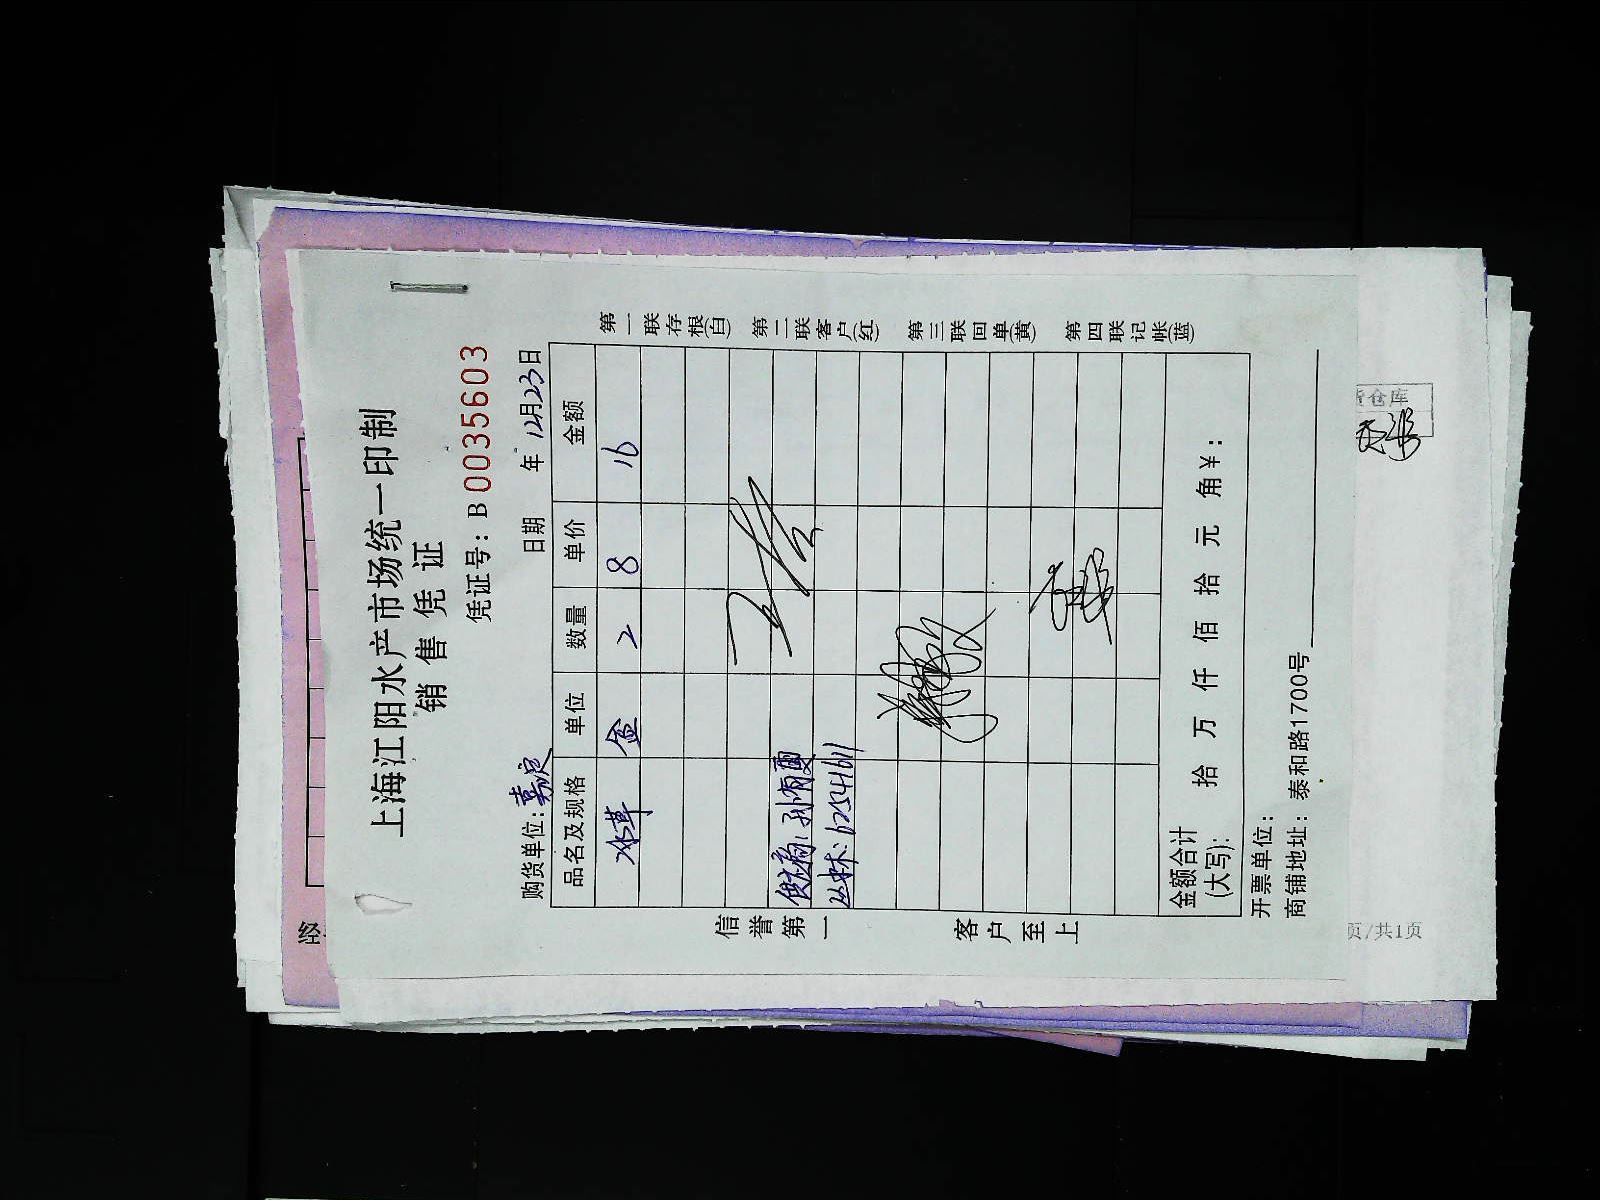 上海江阳水产市场统一印制
销售凭证
凭证号：B 0035603
购货单位：嘉定 日期 年 12月23日
品名及规格 单位 数量 单价 金额
冰草 盒 2 8 16
供应商：孙有更
丛林：62541611
金额合计
(大写)： 拾 万 仟 佰 拾 元 角￥：
开票单位：
商铺地址：泰和路1700号
信誉第一
客户至上
第一联存根(白)
第二联客户(红)
第三联回单(黄)
第四联记帐(蓝)
仓库
页/共1页